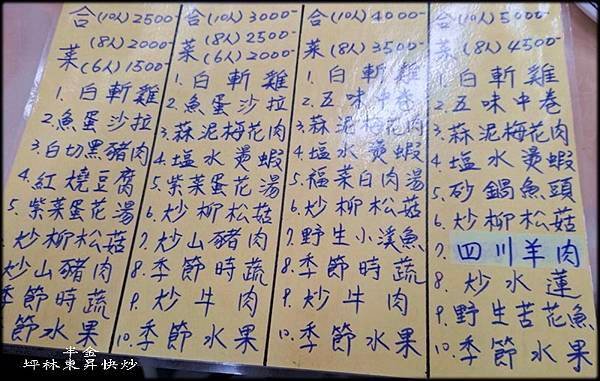 合菜 (10人) 2500-
(8人) 2000-
(6人) 1500-
1. 白斬雞
2. 魚蛋沙拉
3. 白切黑豬肉
4. 紅燒豆腐
5. 紫菜蛋花湯
炒柳松菇
炒山豬肉
季節時蔬
節水果
合菜 (10人) 3000-
(8人) 2500-
(6人) 2000-
1. 白斬雞
2. 魚蛋沙拉
3. 蒜泥梅花肉
4. 塩水燙蝦
5. 紫菜蛋花湯
6. 炒柳松菇
7. 炒山豬肉
8. 季節時蔬
9. 炒牛肉
10. 季節水果
合菜 (10人) 4000-
(8人) 3500-
1. 白斬雞
2. 五味中卷
3. 蒜泥梅花肉
4. 塩水燙蝦
5. 福菜白肉湯
6. 炒柳松菇
7. 野生小溪魚
8. 季節時蔬
9. 炒牛肉
10. 季節水果
合菜 (10人) 5000-
(8人) 4500-
1. 白斬雞
2. 五味中卷
3. 蒜泥梅花肉
4. 塩水燙蝦
5. 砂鍋魚頭
6. 炒柳松菇
7. 四川羊肉
8. 炒水蓮
9. 野生苦花魚
10. 季節水果
半金
坪林東昇快炒